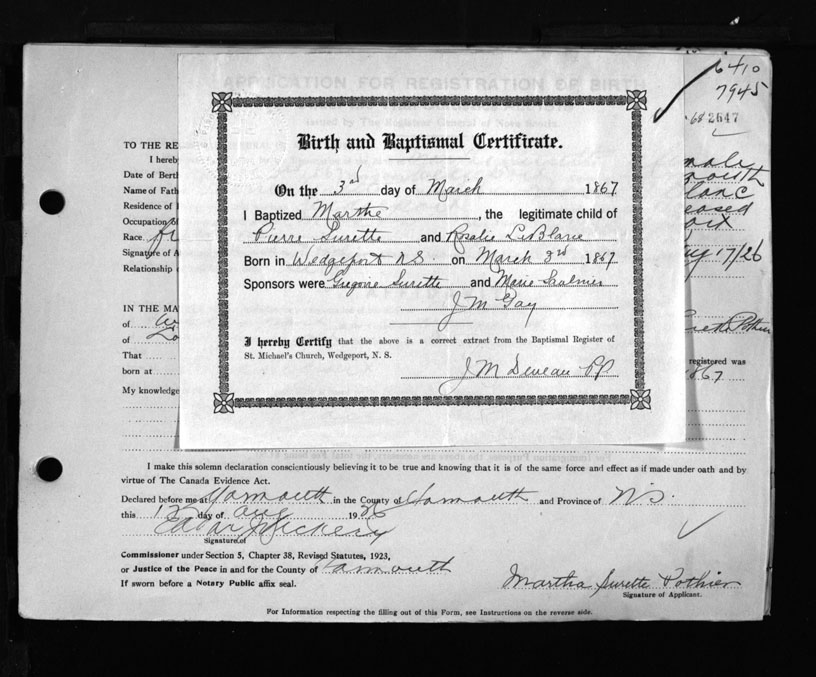 APPLICATION FOR REGISTRATION OF BIRTH
6410
7945
68 2647
Birth and Baptismal Certificate.
On the 3rd day of March 1867
I Baptized Marthe, the legitimate child of
Pierre Surette and Rosalie LeBlanc
Born in Wedgeport N.S. on March 3rd 1867
Sponsors were Gregoire Surette and Marie
J M Gay
I hereby Certify that the above is a correct extract from the Baptismal Register of
St. Michael's Church, Wedgeport, N. S.
J M Deveau PP
TO THE RE
I hereb
Date of Birth
Name of Fath
Residence of
Occupation of
Race. Fr
Signature of A
Relationship
IN THE MA
of
of
That
born at
My knowledge
male
mouth
Blanc
eased
Aug 17/26
Surette Pothier
registered was
1867
I make this solemn declaration conscientiously believing it to be true and knowing that it is of the same force and effect as if made under oath and by
virtue of The Canada Evidence Act.
Declared before me at Yarmouth in the County of Yarmouth and Province of N.S.
this 17 day of Aug 1926
Signature of
Commissioner under Section 5, Chapter 38, Revised Statutes, 1923,
or Justice of the Peace in and for the County of Yarmouth
If sworn before a Notary Public affix seal.
Martha Surette Pothier
Signature of Applicant.
For Information respecting the filling out of this Form, see Instructions on the reverse side.